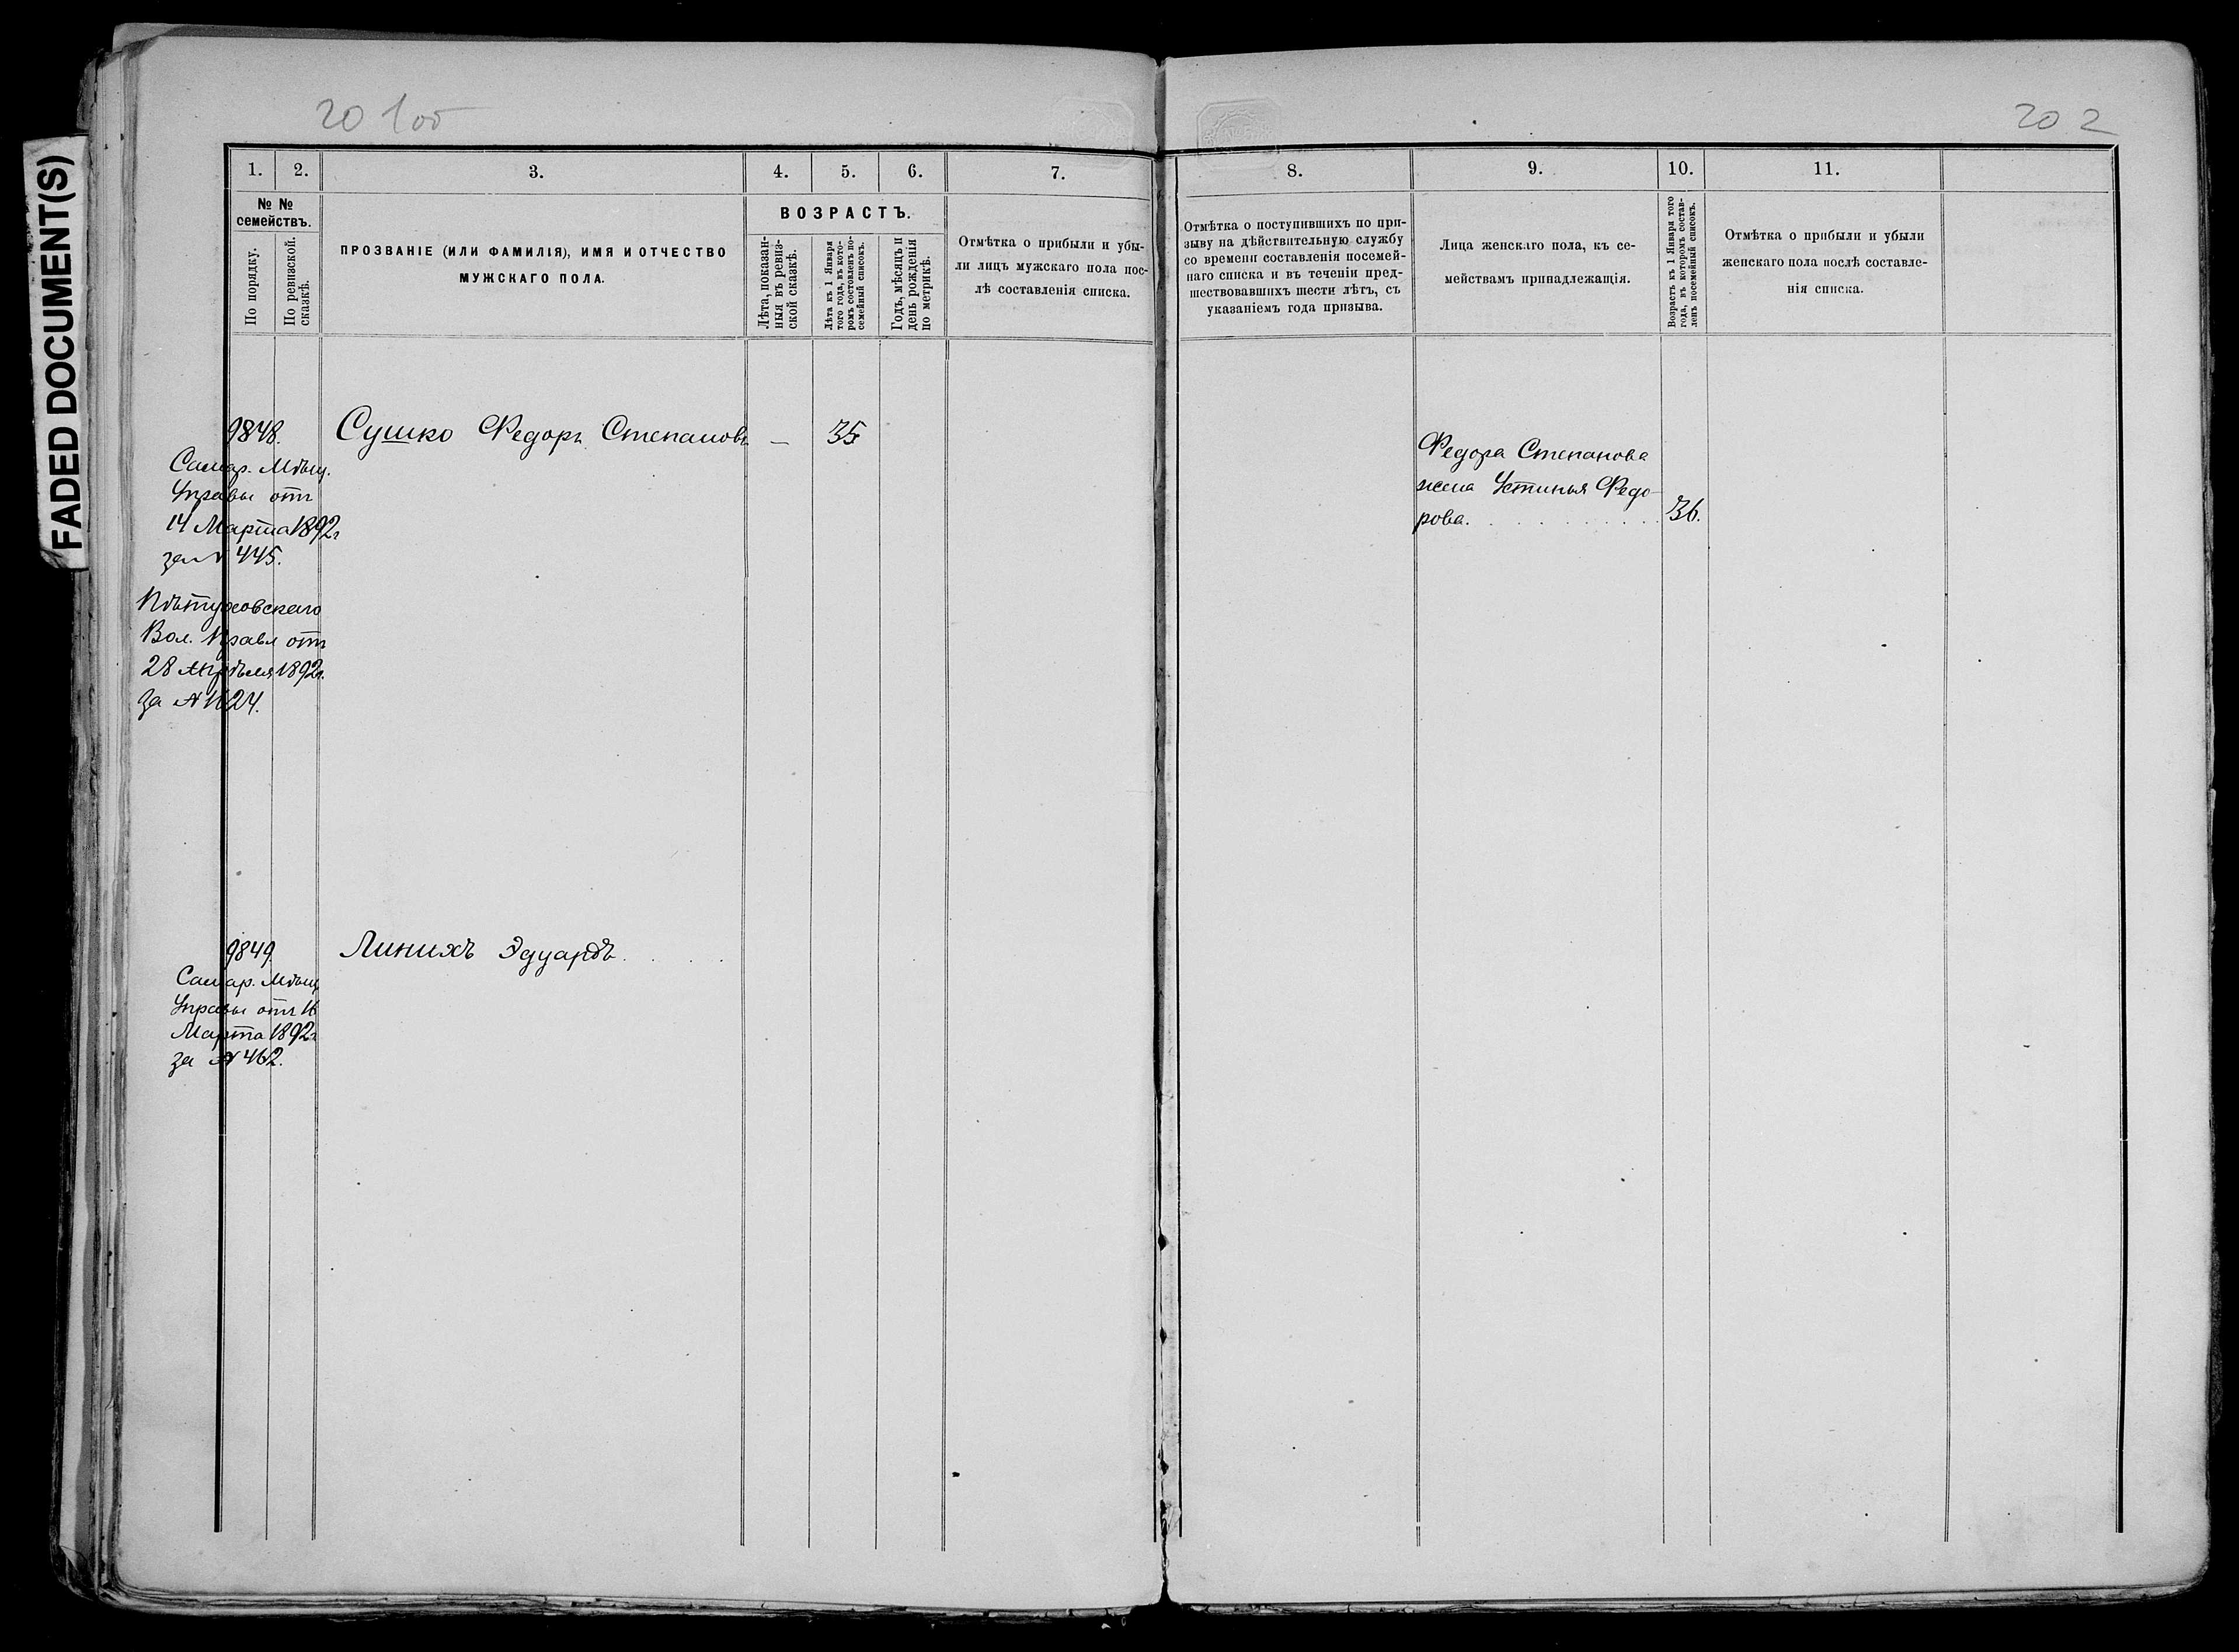 FADED DOCUMENT(S)
201об
202
1. 2. 3. 4. 5. 6. 7.
№ № семействъ.
По порядку.
По ревизской сказкѣ.
ПРОЗВАНІЕ (ИЛИ ФАМИЛІЯ), ИМЯ И ОТЧЕСТВО
МУЖСКАГО ПОЛА.
ВОЗРАСТЪ.
Лѣта, показан-
ныя въ ревиз-
ской сказкѣ.
Лѣта къ 1 Января
того года, въ кото-
ромъ составленъ по-
семейный списокъ.
Годъ, мѣсяцъ и
день рожденія
по метрикѣ.
Отмѣтка о прибыли и убы-
ли лицъ мужскаго пола пос-
лѣ составленія списка.
8. 9. 10. 11.
Отмѣтка о поступившихъ по при-
зыву на дѣйствительную службу
со времени составленія посемей-
наго списка и въ теченіи пред-
шествовавшихъ шести лѣтъ, съ
указаніемъ года призыва.
Лица женскаго пола, къ се-
мействамъ принадлежащія.
Возрастъ къ 1 Января того
года, въ которомъ состав-
ленъ посемейный списокъ.
Отмѣтка о прибыли и убыли
женскаго пола послѣ составле-
нія списка.
9848. Сушко Федоръ Степановъ — 35
Самар. Мѣщ.
Управы отъ
14 Марта 1892г
за № 445.
Пѣтуховскаго
Вол. Правл отъ
28 Апрѣля 1892г.
за № 1624.
Федора Степанова
жена Устинья Федо-
рова. 36.
9849. Линихъ Эдуардъ
Самар. Мѣщ
Управы отъ 16
Марта 1892г
за № 462.